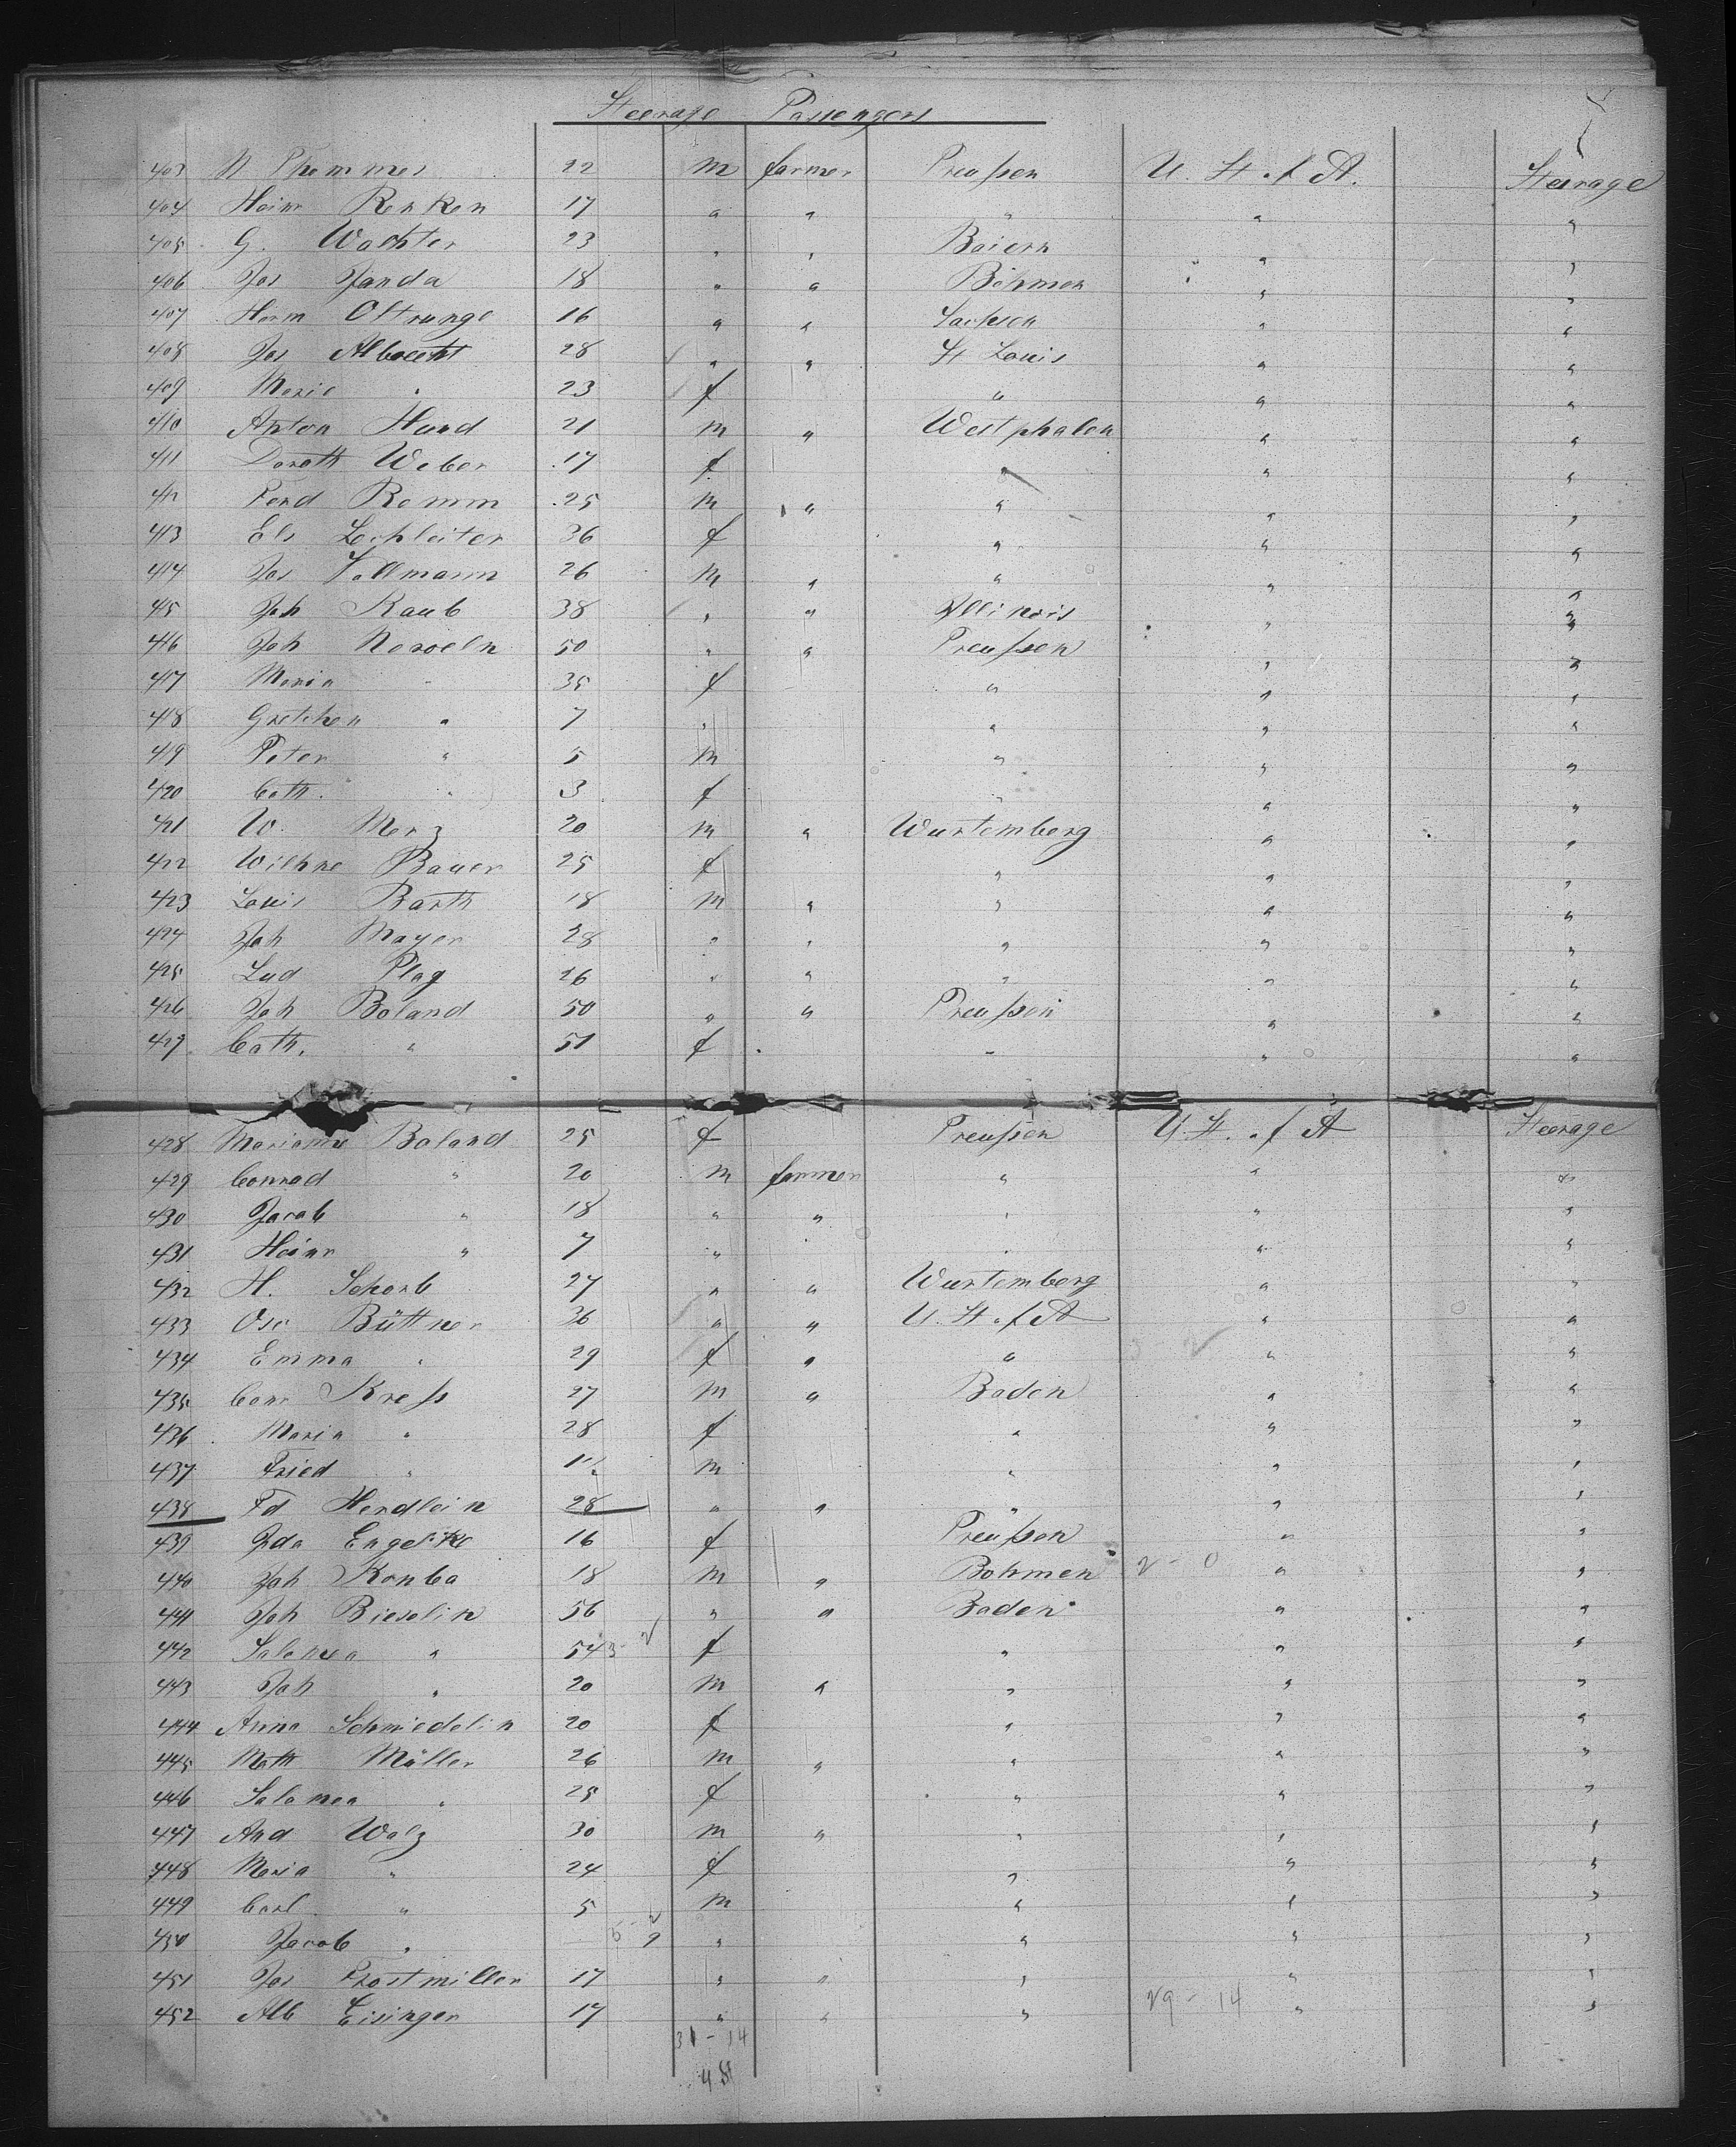 Steerage Passengers
403 N Thommes 22 m farmer Preußen U. St. of A. Steerage
404 Heinr Renken 17 " " " " "
405 G. Wachter 23 " " Baiern " "
406 Jos Janda 18 " " Böhmen " "
407 Herm Oltrunge 16 " " Sachsen " "
408 Jos Albrecht 28 " " St Louis " "
409 Marie " 23 f " " "
410 Anton Hund 21 m " Westphalen " "
411 Doroth Weber 17 f " " "
412 Ferd Romm 25 m " " " "
413 Els Lechleiter 36 f " " "
414 Jos Vollmann 26 m " " " "
415 Joh Raub 38 " " Illinois " "
416 Joh 50 " " Preußen " "
417 Maria " 35 f " " "
418 Gretchen " 7 " " " "
419 Peter " 5 m " " "
420 Cath. " 3 f " " "
421 W. Merz 20 m " Wurtemberg " "
422 Wilhne Bauer 25 f " " "
423 Louis Barth 18 m " " " "
424 Joh Mayer 28 " " " " "
425 Lud Plag 26 " " " " "
426 Joh Boland 50 " " Preußen " "
427 Cath. " 51 f " " "
428 Marianne Boland 25 f Preußen U. St. of A Steerage
429 Conrad " 20 m farmer " " "
430 Jacob " 18 " " " " "
431 Heinr " 7 " " " "
432 H. Schorb 27 " " Wurtemberg " "
433 Osc Büttner 36 " " U. St. of A " "
434 Emma " 29 f " " " "
435 Conr Kreß 27 m " Baden " "
436 Maria " 28 f " " "
437 Fried " m " " "
438 Fd Herdlein 28 " " " " "
439 Ida Engelke 16 f Preußen " "
440 Joh Konba 18 m " Bohmen " "
441 Joh Bieselin 56 " " Baden " "
442 Salomea " 54 f " " "
443 Joh " 20 m " " " "
444 Anna Schmiedelin 20 f " " "
445 Math Müller 26 m " " " "
446 Salomea " 25 f " " "
447 And Walz 30 m " " " "
448 Maria " 24 f " " "
449 Carl " 5 m " " "
450 Jacob " " " " "
451 Jos Frostmiller 17 " " " " "
452 Alb Eisinger 17 " " " 29 - 14 " "
31 - 14